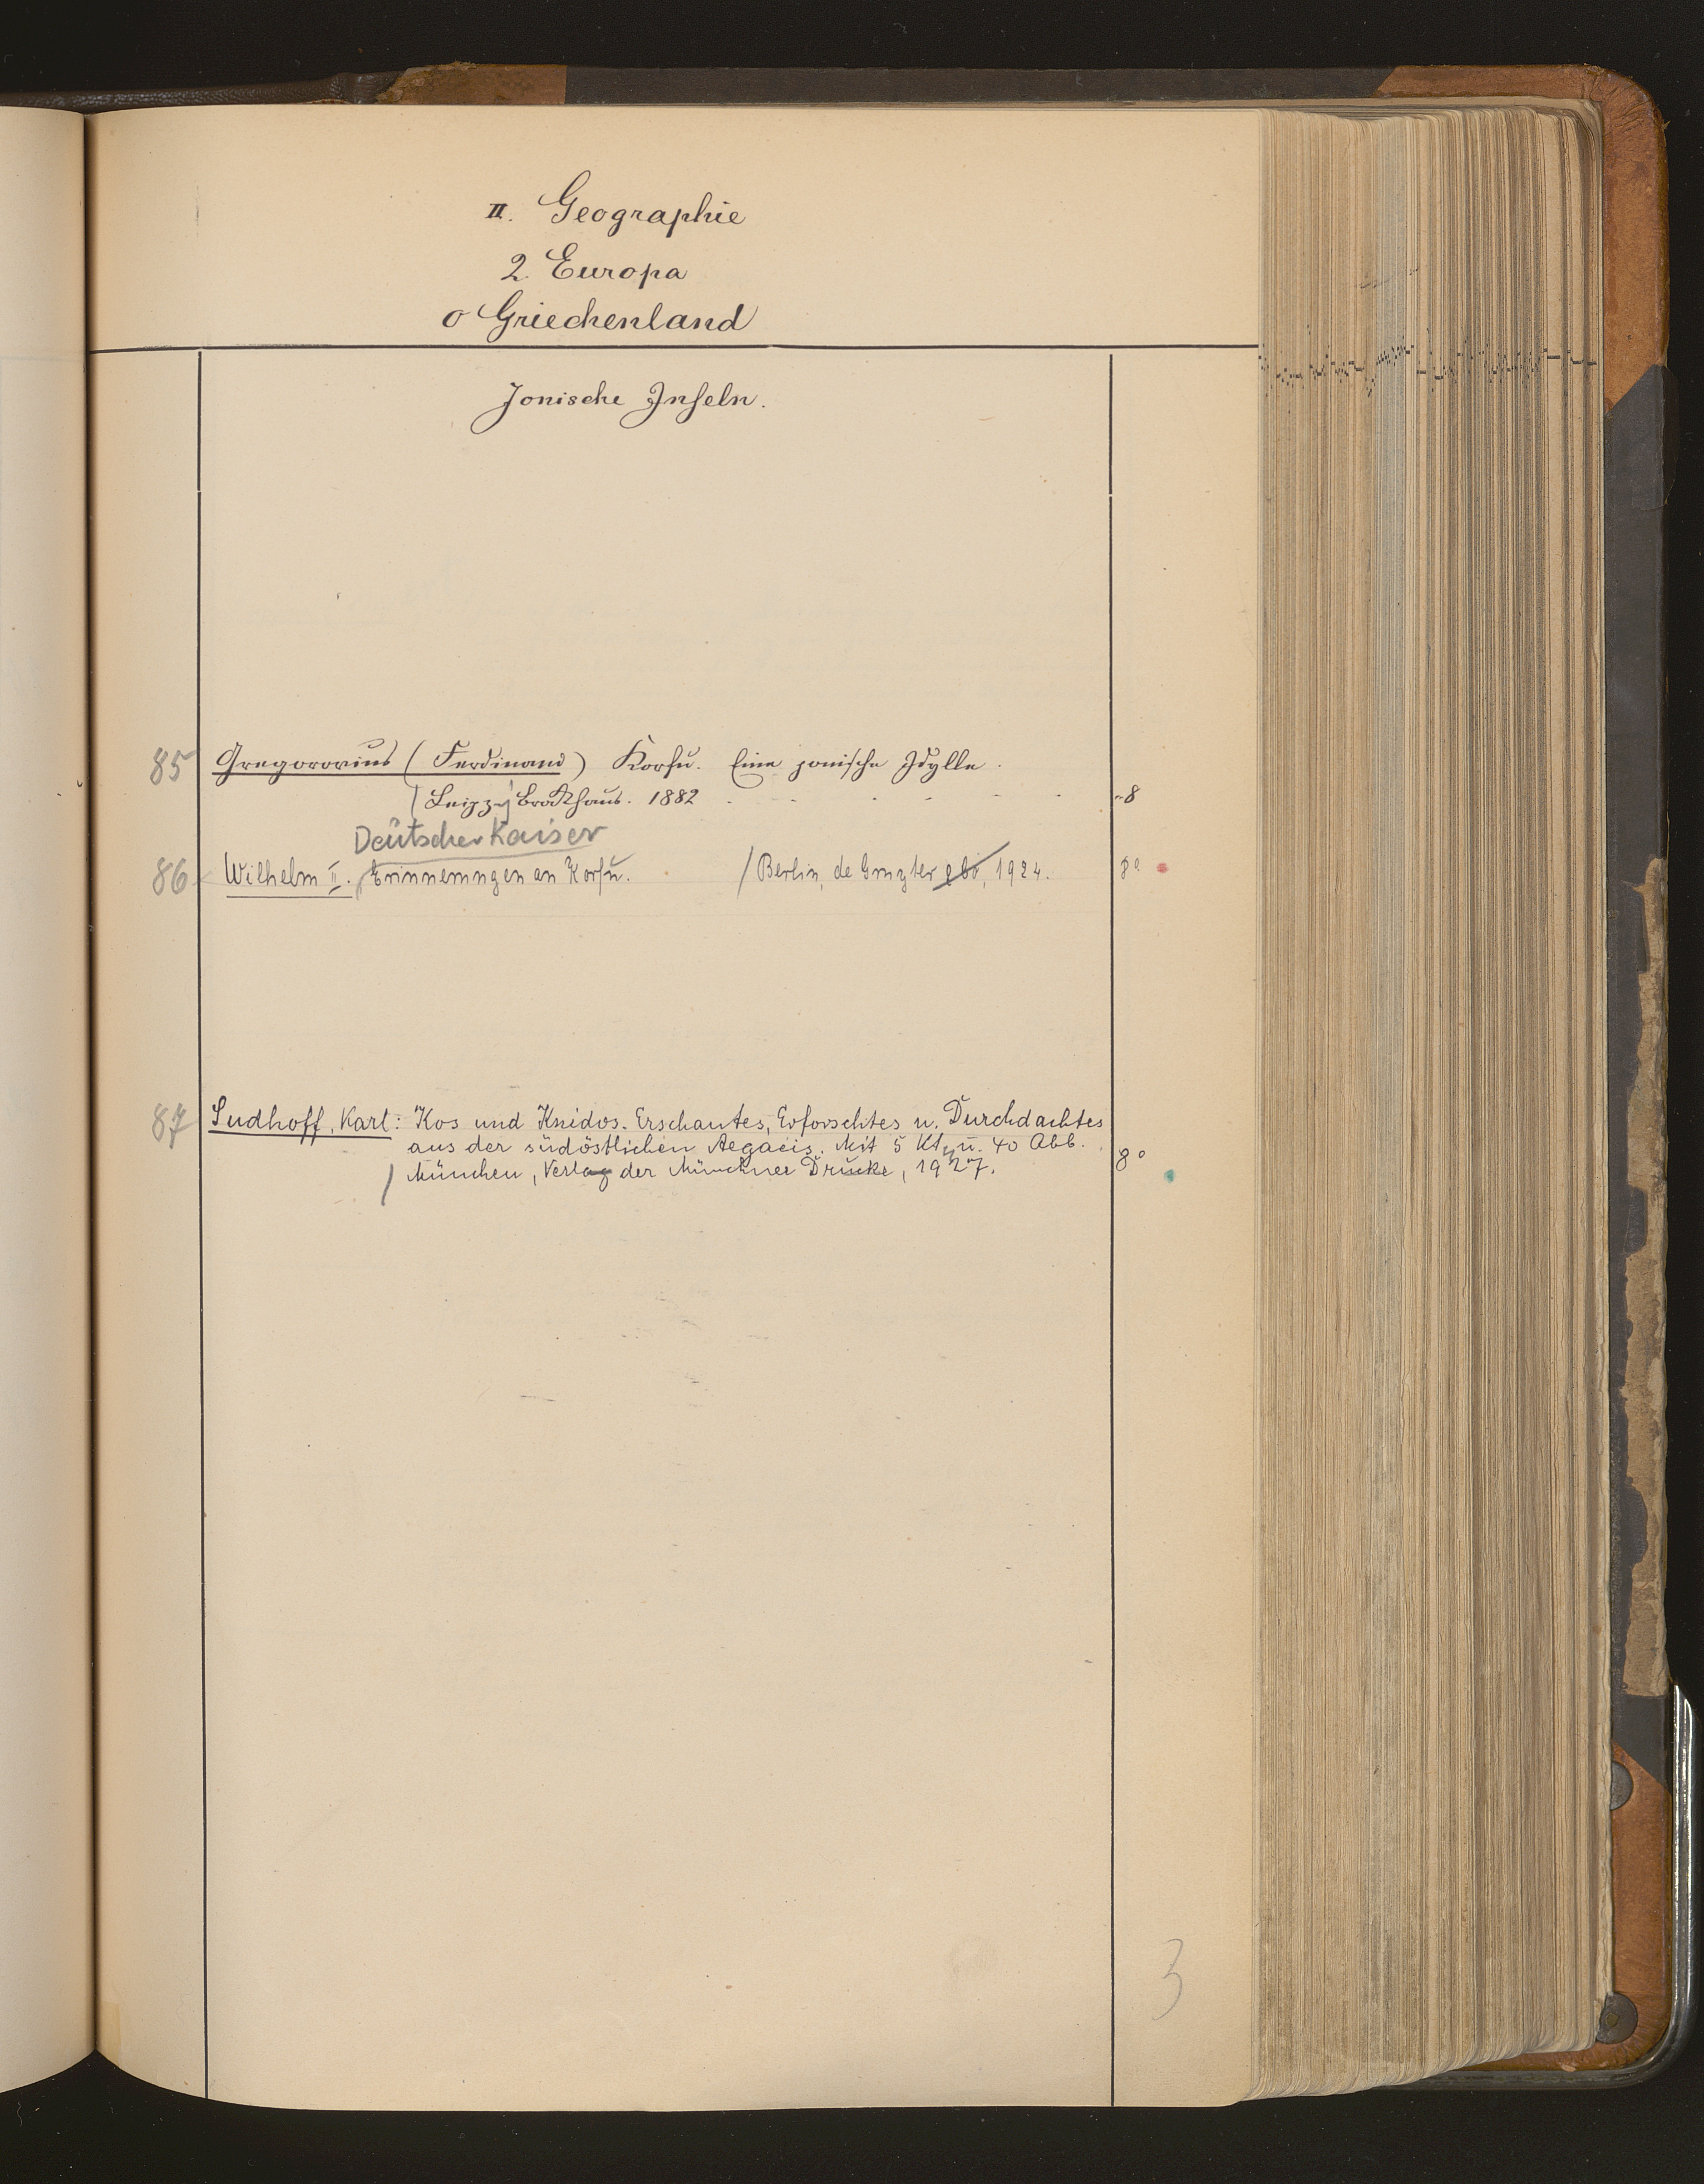 II. Geographie
2. Europa
o Griechenland
Jonische Inseln.
85 Gregorovius (Ferdinand) Korfu. Eine jonische Idylle.
/ Leipzig Brockhaus. 1882 - - - - - - 8
Deutscher Kaiser
86 Wilhelm II. Erinnerungen an Korfu. / Berlin, de Gruyter, 1924. 8°
87 Sudhoff, Karl: Kos und Knidos. Erschautes, Erforschtes u. Durchdachtes
aus der südöstlichen Aegaeis. Mit 5 Kt. u. 40 Abb.
/ München, Verlag der Münchner Drucke, 1927. 8°
3